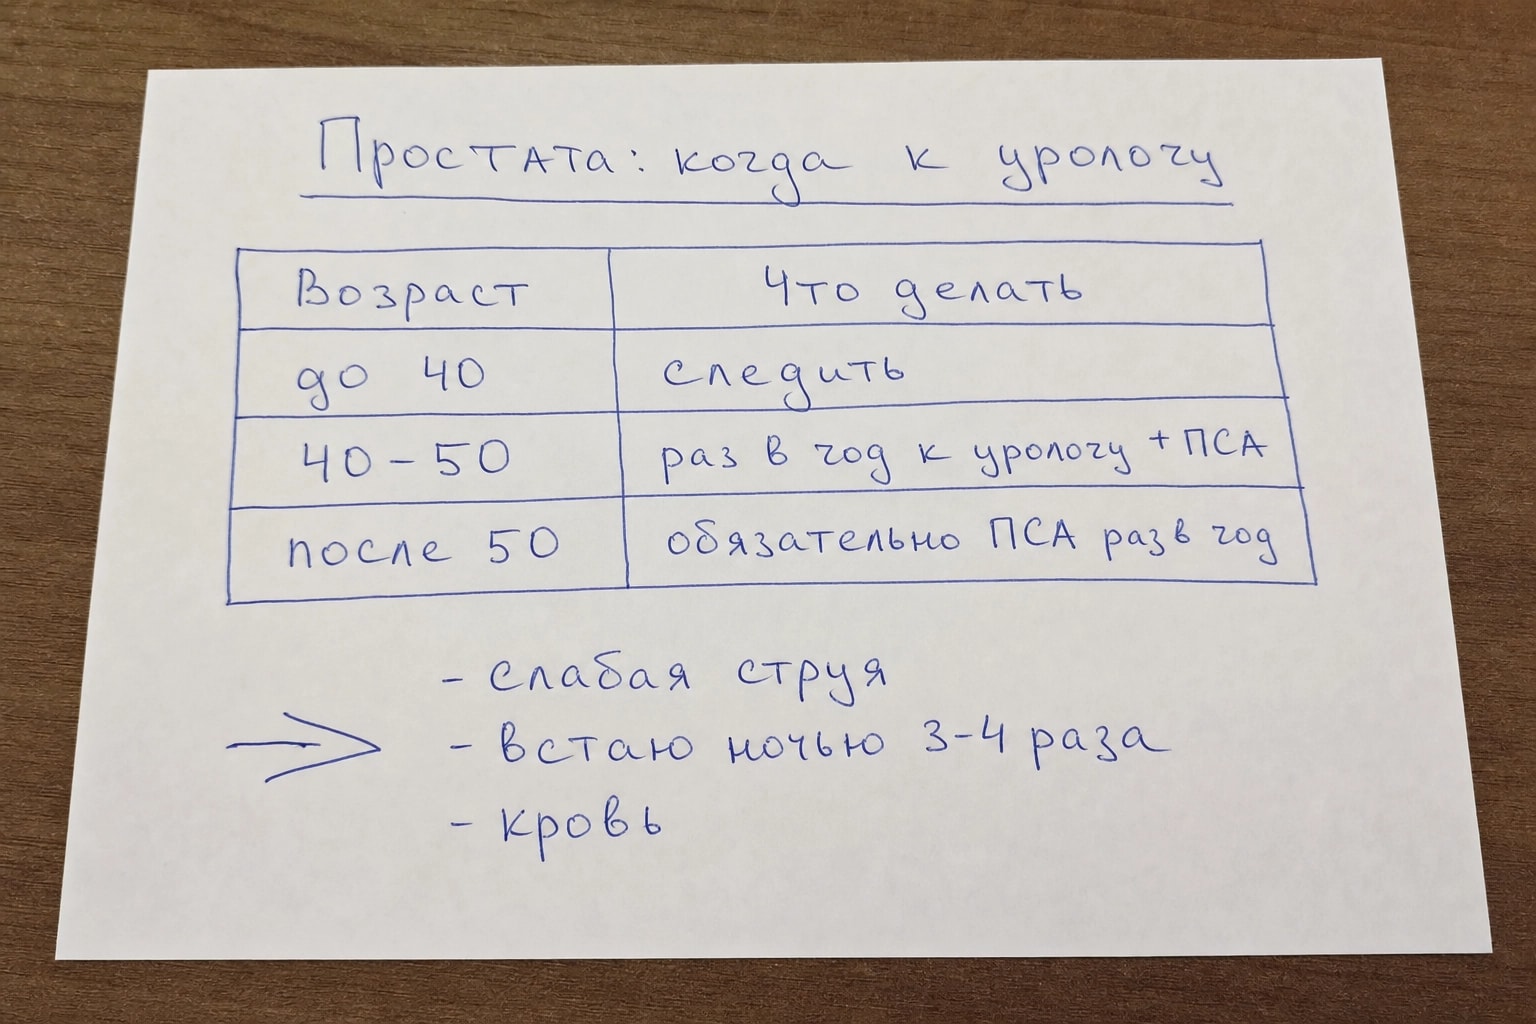 Простата: когда к урологу
Возраст Что делать
до 40 следить
40-50 раз в год к урологу + ПСА
после 50 обязательно ПСА раз в год
- слабая струя
- встаю ночью 3-4 раза
- кровь